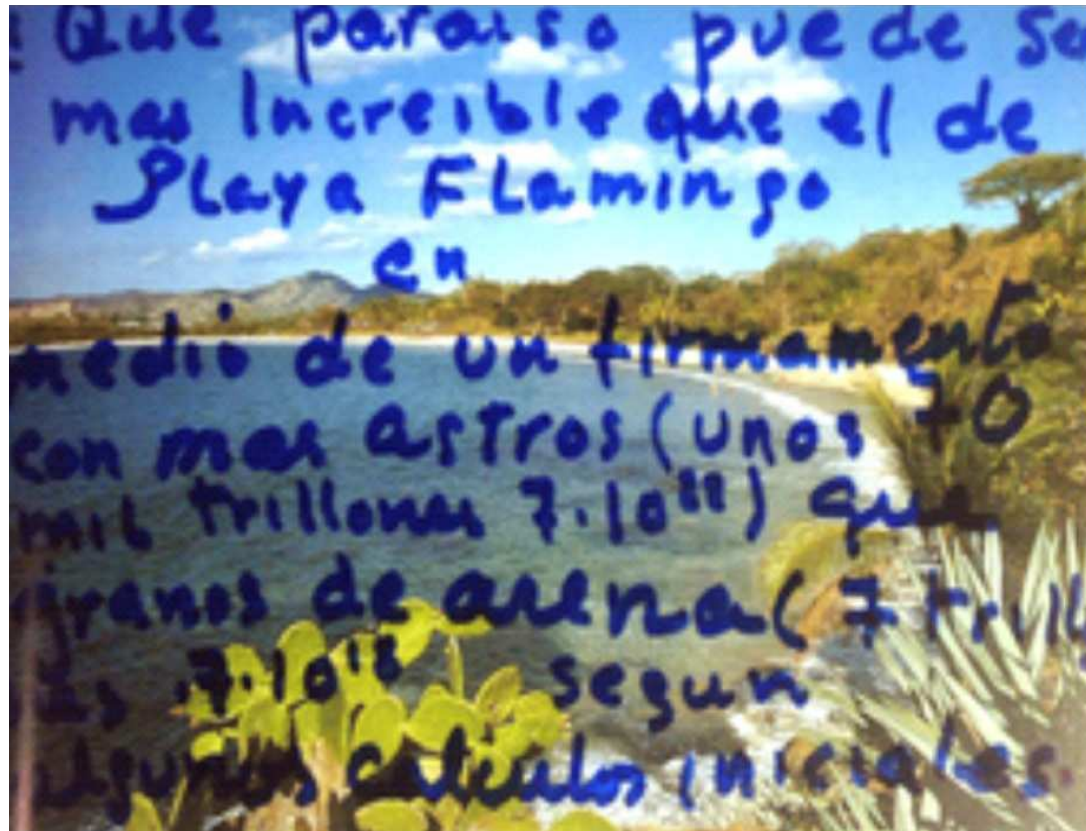 ¿Que paraiso puede se
mas Increible que el de
Playa Flamingo
en
medio de un firmamento
con mas astros (unos 70
mil trillones 7.10²²) que
granos de arena ( 7 trill
7.10¹⁸ segun
algunos calculos iniciales.